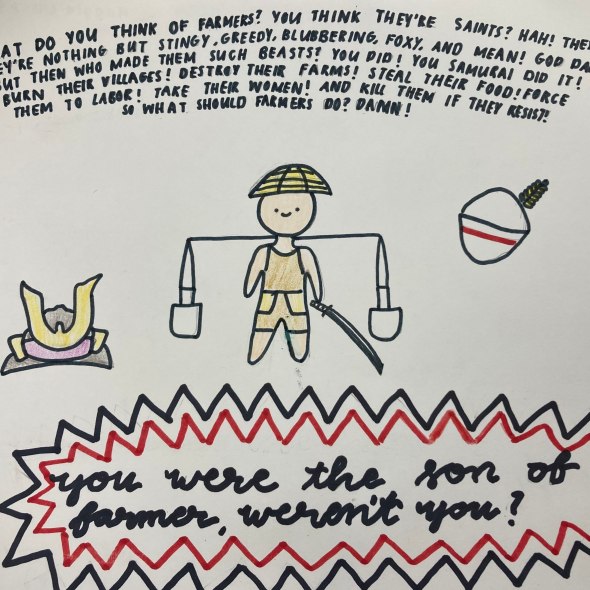 AT DO YOU THINK OF FARMERS? YOU THINK THEY'RE SAINTS? HAH! THE
EY'RE NOTHING BUT STINGY, GREEDY, BLUBBERING, FOXY, AND MEAN! GOD DA
BUT THEN WHO MADE THEM SUCH BEASTS? YOU DID! YOU SAMURAI DID IT!
BURN THEIR VILLAGES! DESTROY THEIR FARMS! STEAL THEIR FOOD! FORCE
THEM TO LABOR! TAKE THEIR WOMEN! AND KILL THEM IF THEY RESIST!
SO WHAT SHOULD FARMERS DO? DAMN!
you were the son of
farmer, weren't you?